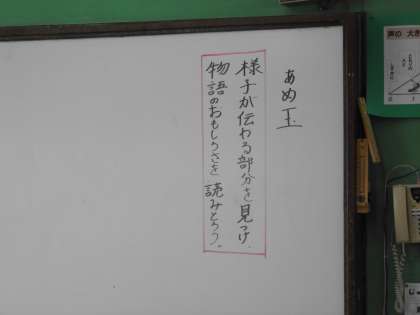 あめ玉
様子が伝わる部分を見つけ、
物語のおもしろさを読みとろう。
声の大き